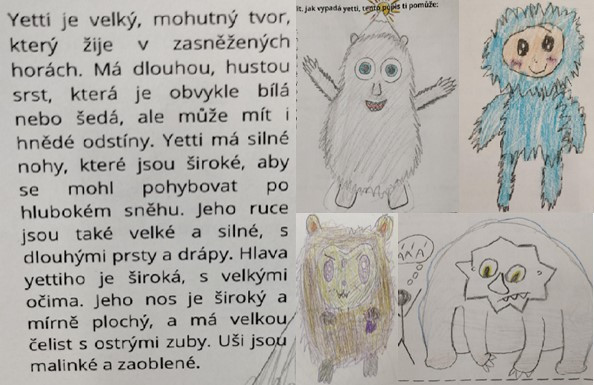 Yetti je velký, mohutný tvor,
který žije v zasněžených
horách. Má dlouhou, hustou
srst, která je obvykle bílá
nebo šedá, ale může mít i
hnědé odstíny. Yetti má silné
nohy, které jsou široké, aby
se mohl pohybovat po
hlubokém sněhu. Jeho ruce
jsou také velké a silné, s
dlouhými prsty a drápy. Hlava
yettiho je široká, s velkými
očima. Jeho nos je široký a
mírně plochý, a má velkou
čelist s ostrými zuby. Uši jsou
malinké a zaoblené.
jak vypadá yetti, tento popis ti pomůže: